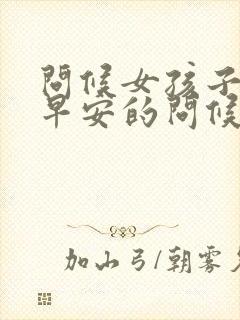 問候女孩子
早安的問候
加山弓/朝雾